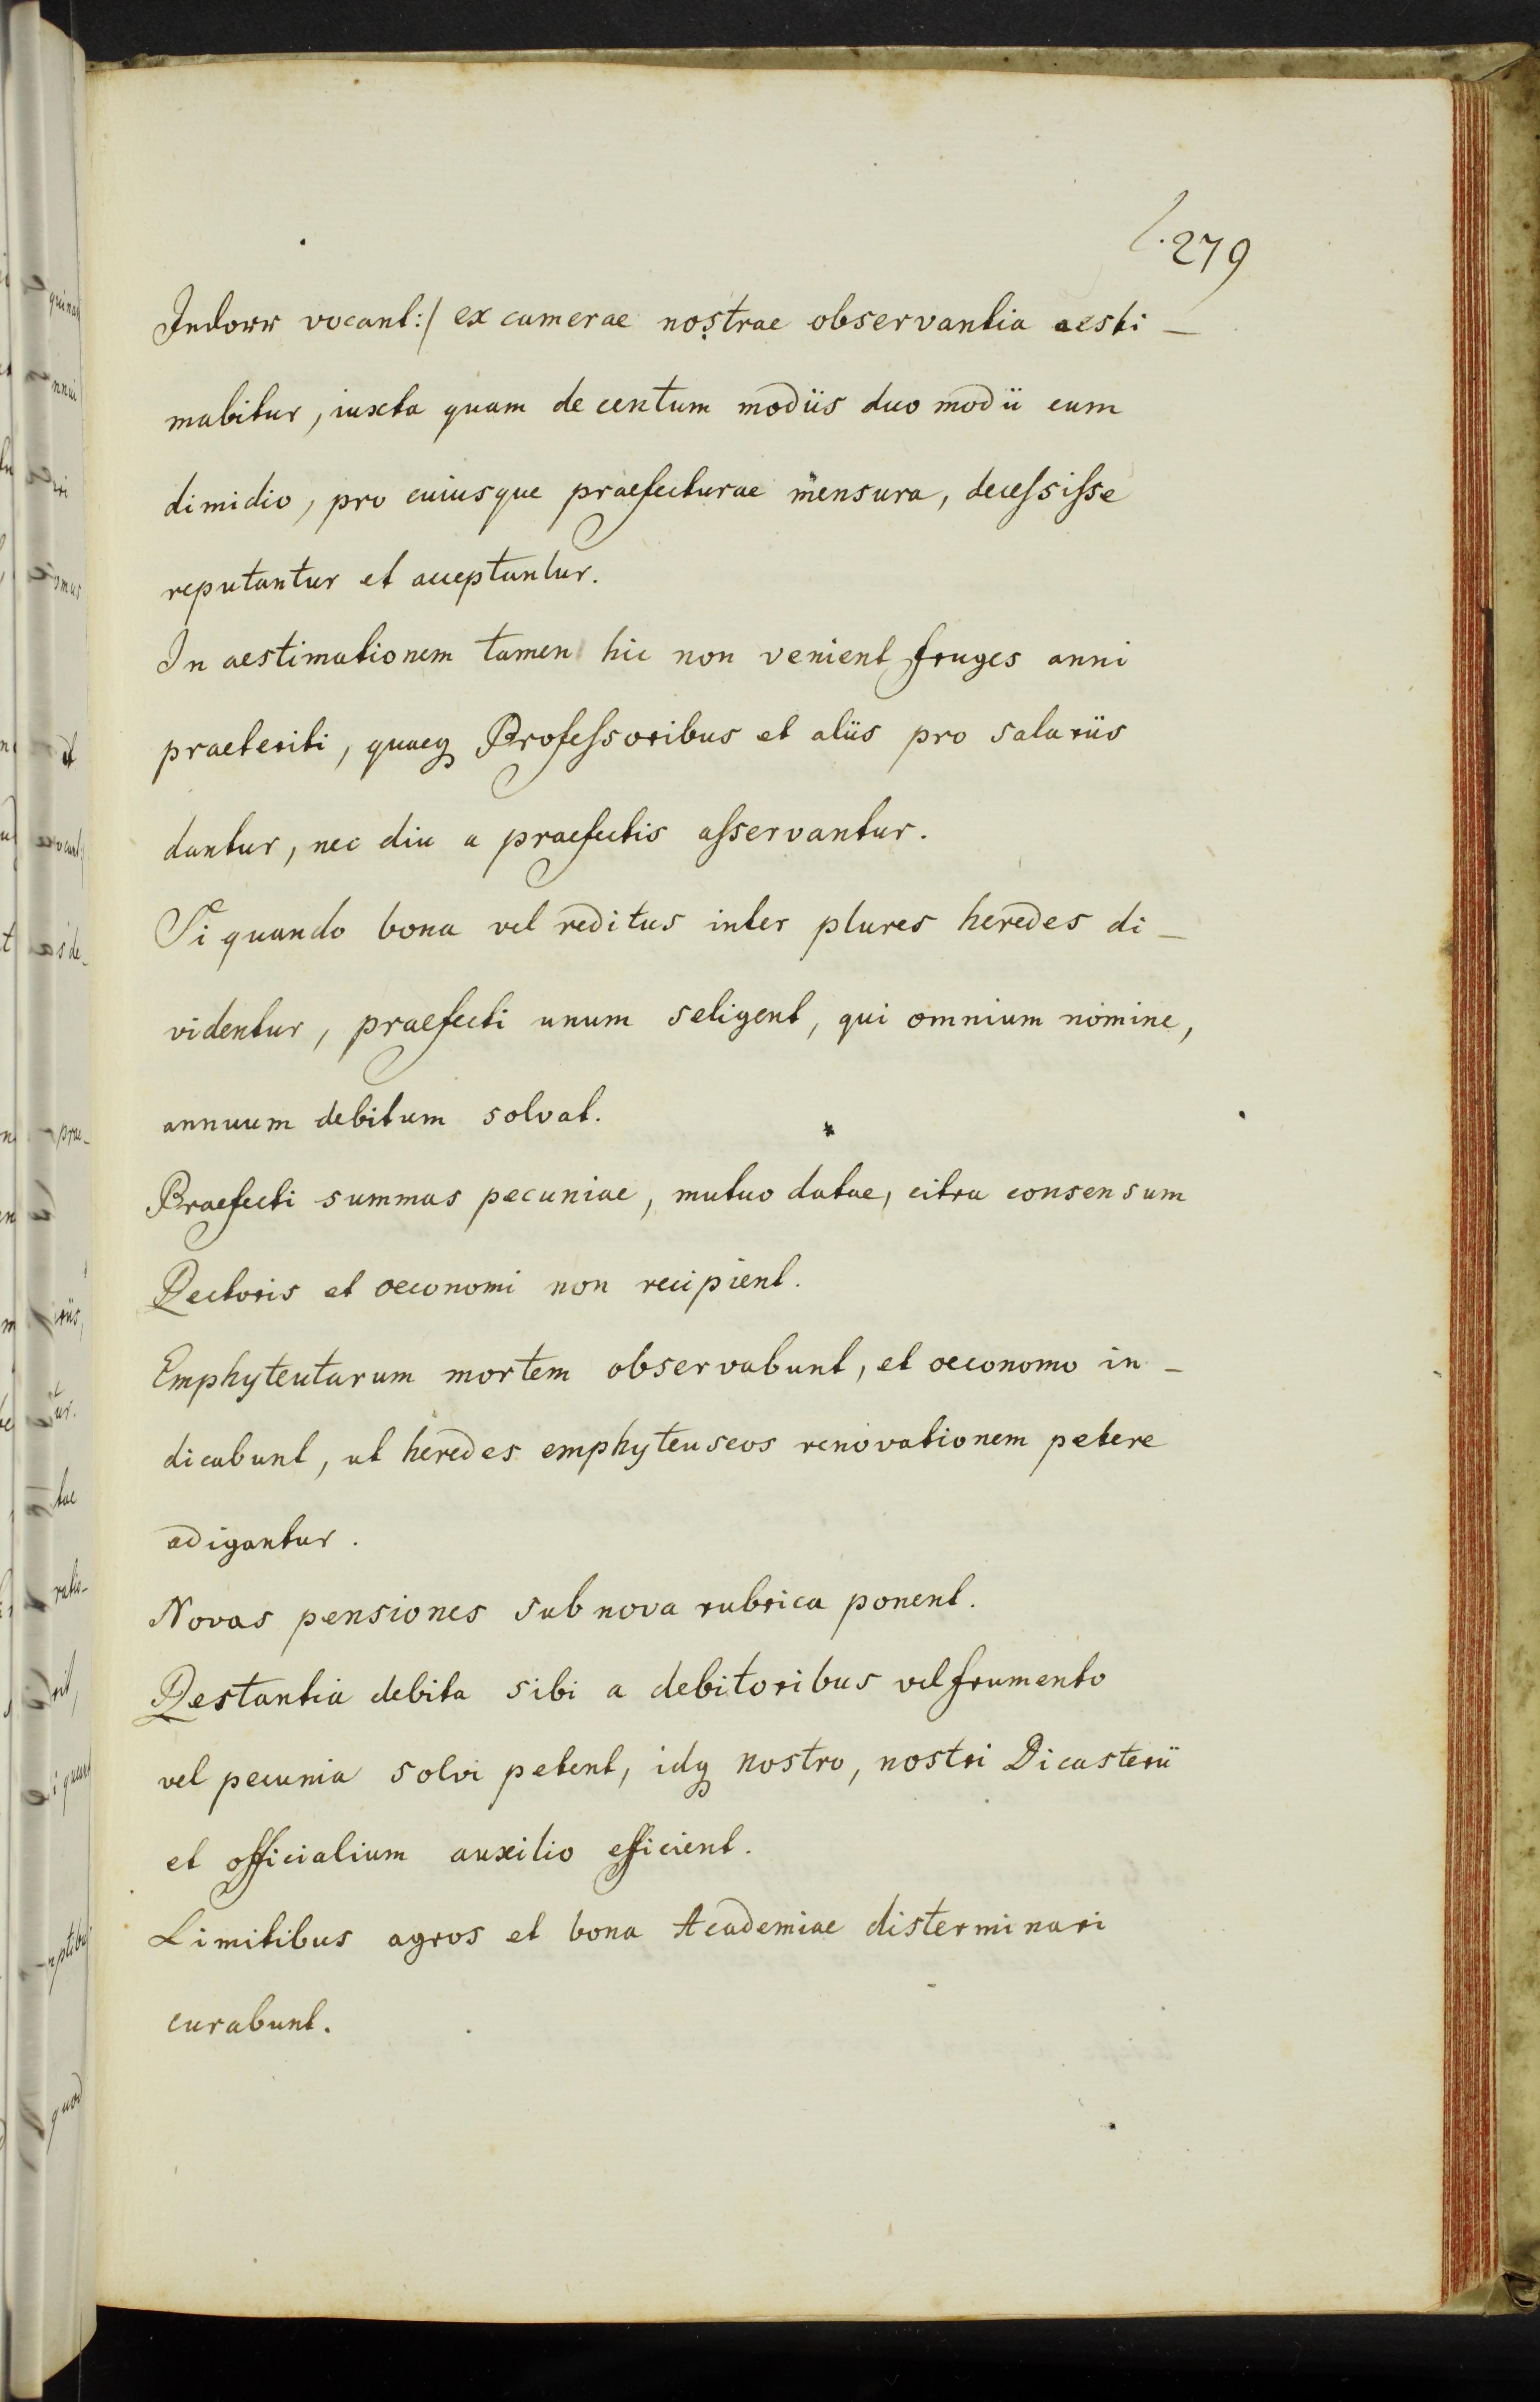 279
Indorr vocant:/ ex camerae nostrae observantia aesti-
mabitur, iuxta quam de centum modiis duo modii cum
dimidio, pro cuiusque praefecturae mensura, decessisse
reputantur et acceptantur.
In aestimationem tamen hic non venient fruges anni
praeteriti, quaeq Professoribus et aliis pro salariis
dantur, nec diu a praefectis asservantur.
Si quando bona vel reditus inter plures heredes di-
videntur, praefecti unum seligent, qui omnium nomine,
annuum debitum solvat.
Praefecti summas pecuniae, mutuo datae, citra consensum
Rectoris et oeconomi non recipient.
Emphyteutarum mortem observabunt, et oeconomo in-
dicabunt, ut heredes emphyteuseos renovationem petere
adigantur.
Novas pensiones sub nova rubrica ponent.
Restantia debita sibi a debitoribus vel frumento
vel pecunia solvi petent, idq nostro, nostri Dicasterii
et officialium auxilio efficient.
Limitibus agros et bona Academiae disterminari
curabunt.